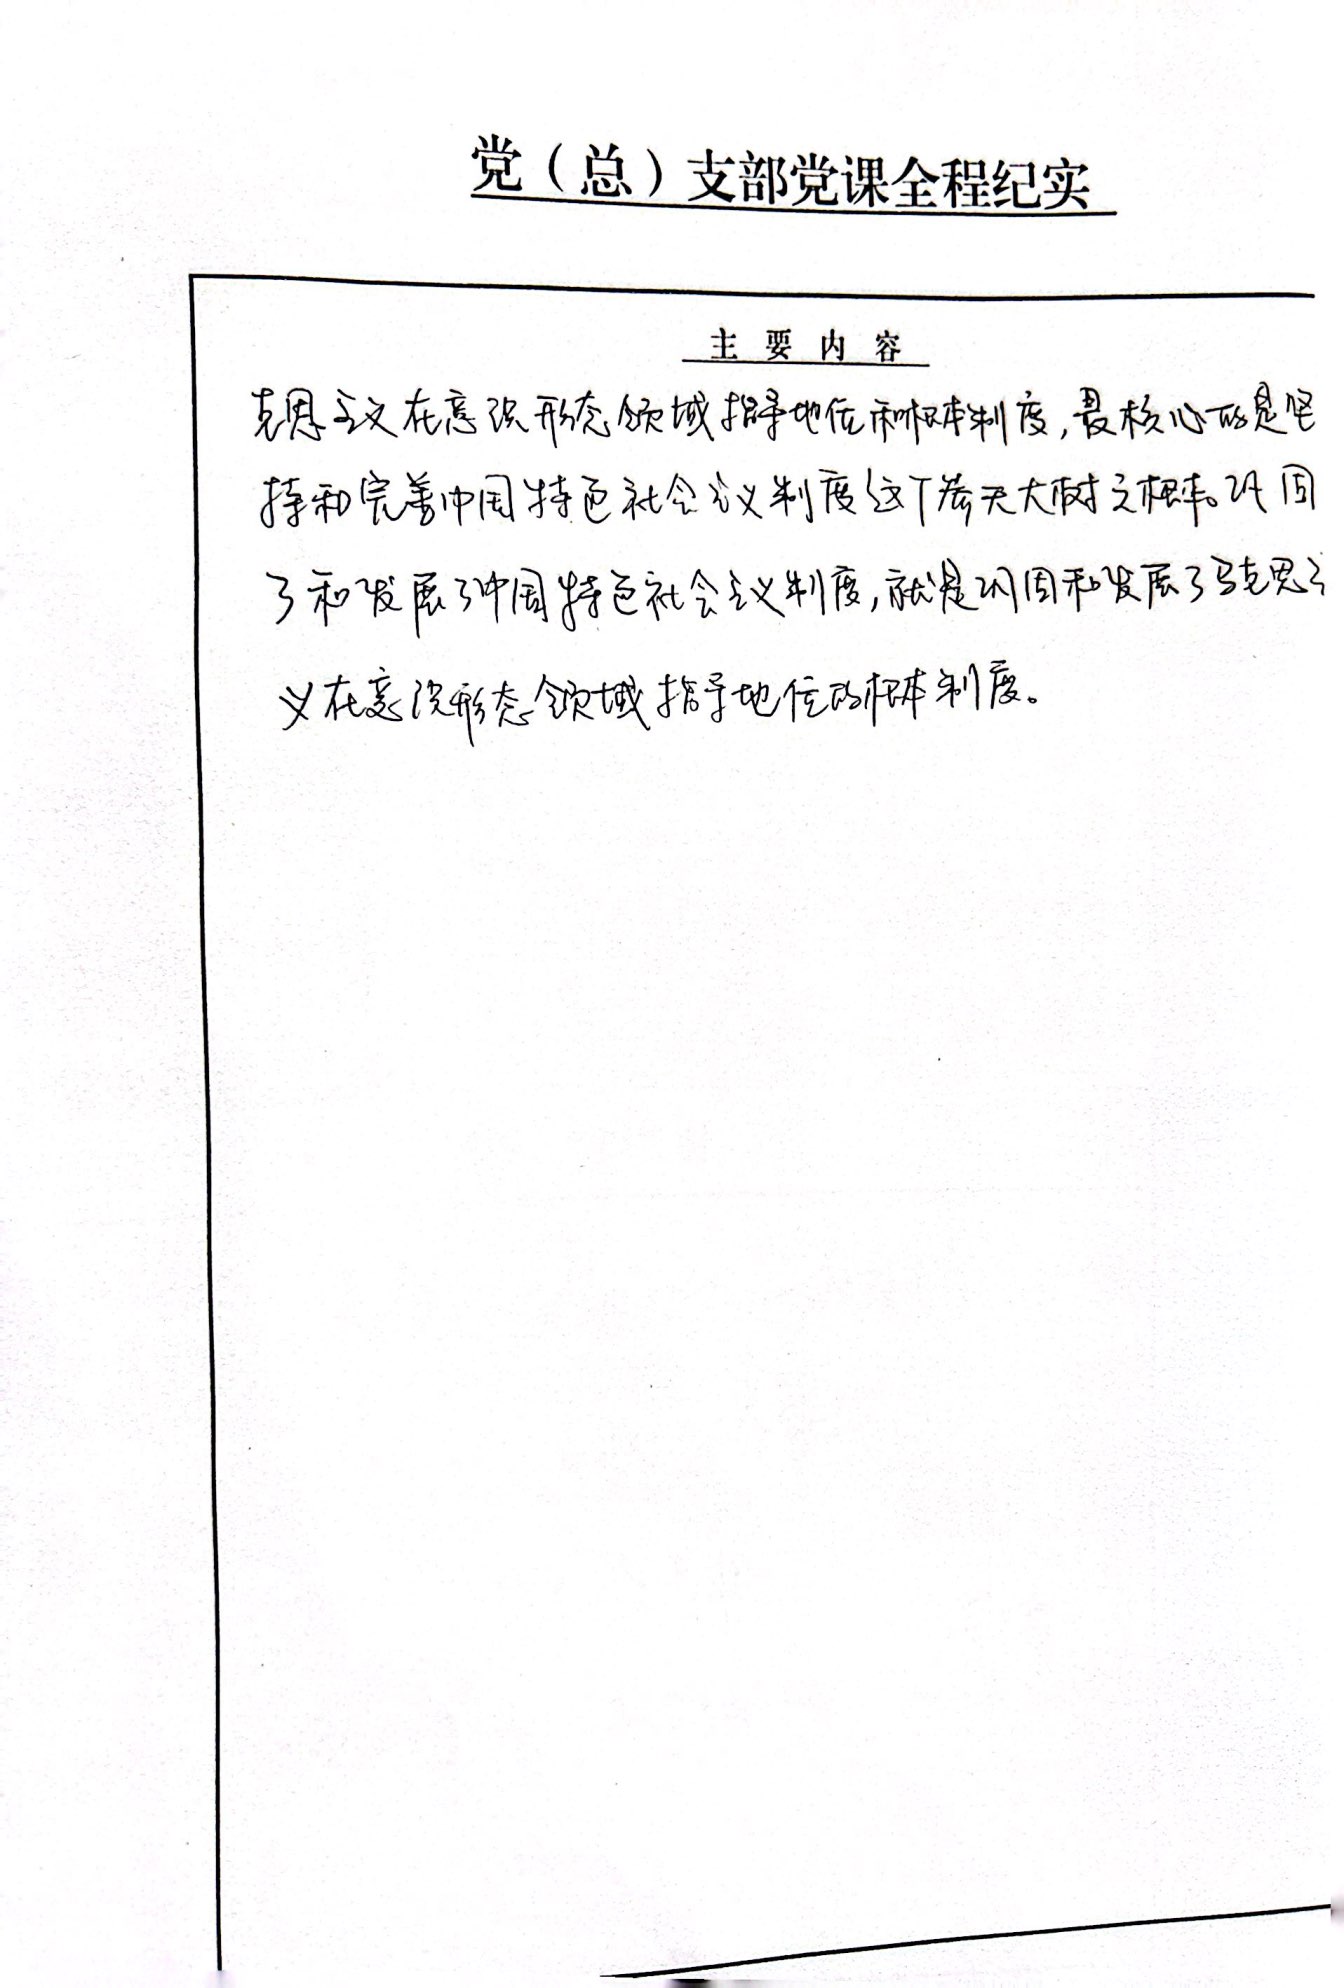 党（总）支部党课全程纪实
主要内容
克思主义在意识形态领域指导地位和根本制度，最核心的是坚
持和完善中国特色社会主义制度这个参天大树之根本。巩固
了和发展了中国特色社会主义制度，就是巩固和发展了马克思主
义在意识形态领域指导地位的根本制度。